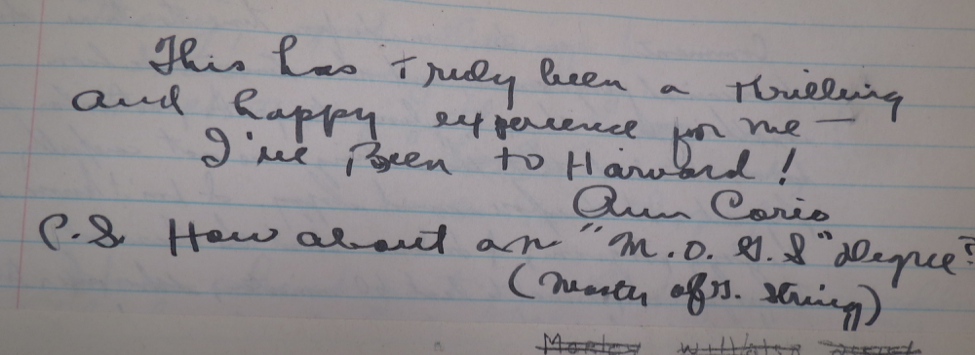 This has truly been a thrilling
and happy experience for me —
I've Been to Harvard!
Ann Corio
P.S. How about an "M.O.G.S" degree?
(Master of G. String)